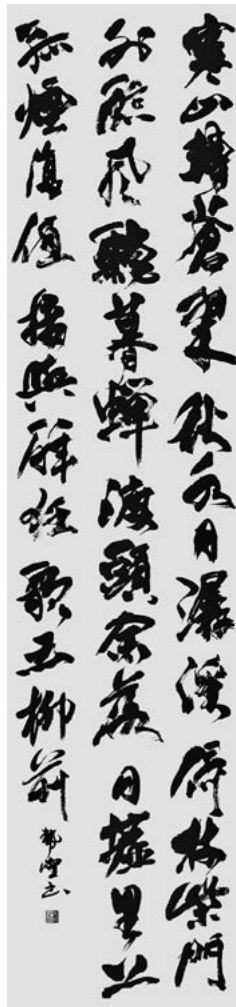 寒山轉蒼翠秋水日潺湲倚杖柴門
外臨風聽暮蟬渡頭余落日墟里上
孤煙復值接輿醉狂歌五柳前 書